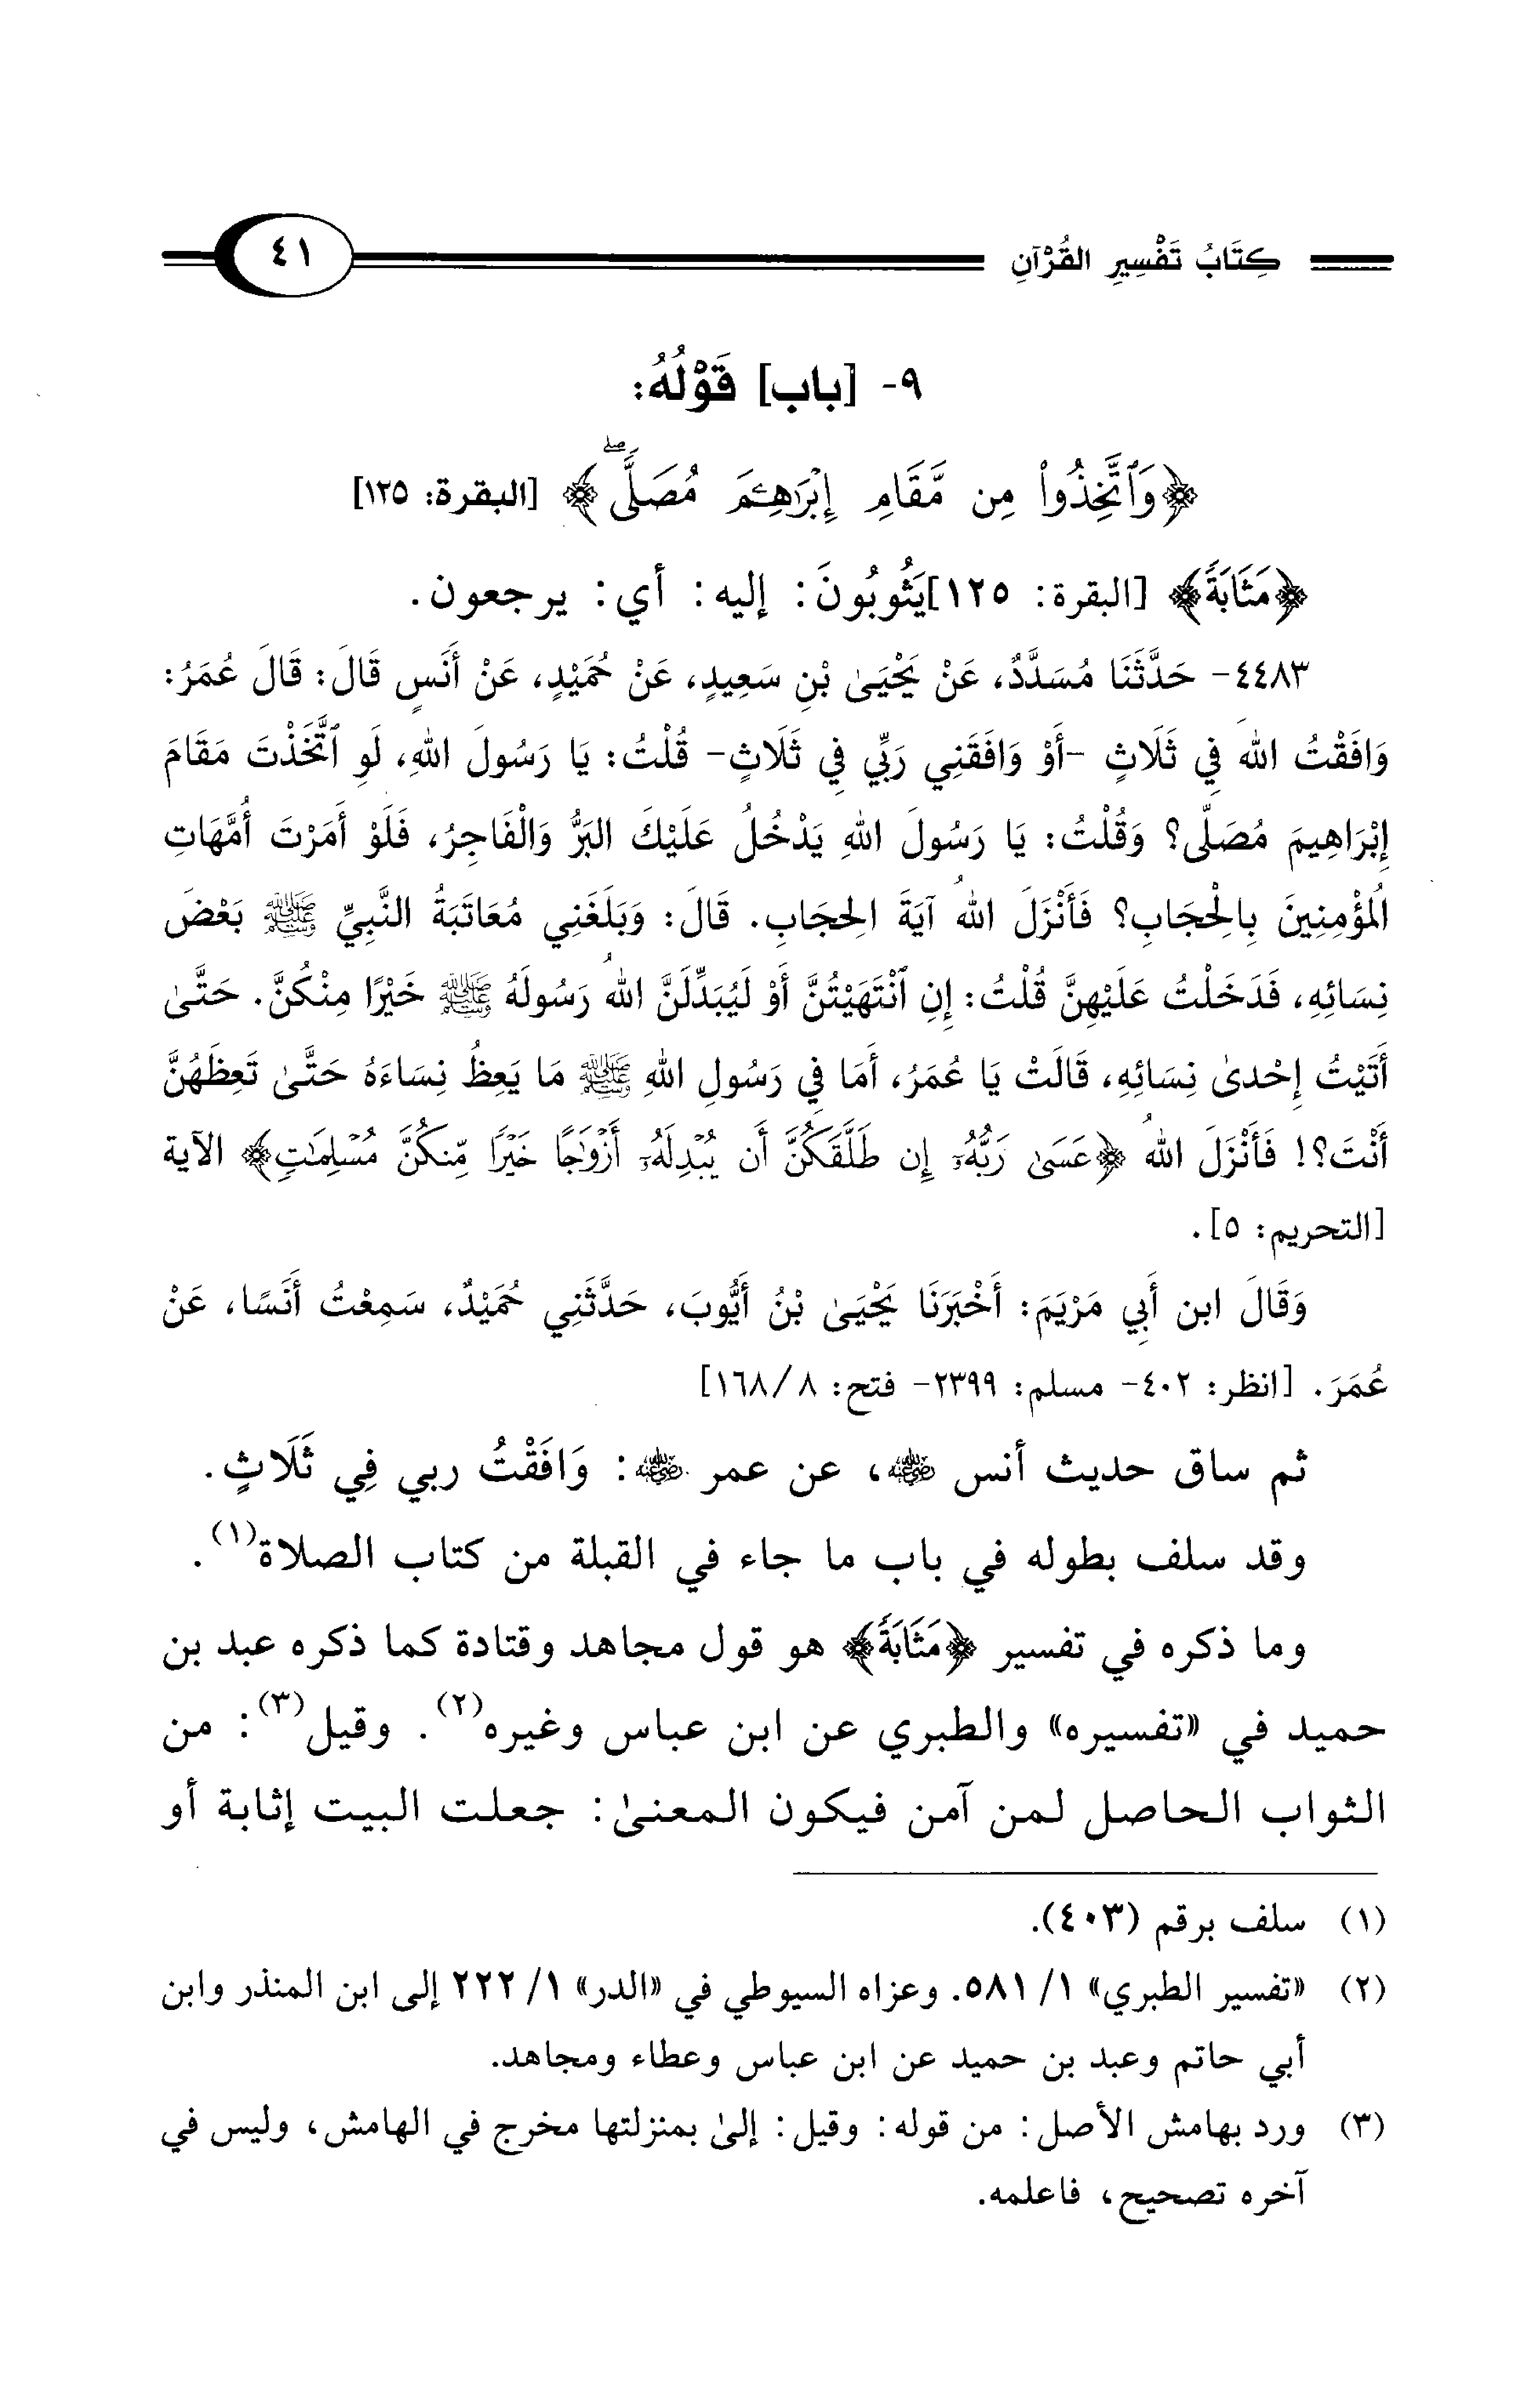 كِتَابُ تَفْسِيرِ القُرْآنِ ٤١
٩- [باب] قَوْلُهُ:
﴿وَٱتَّخِذُوا۟ مِن مَّقَامِ إِبْرَٰهِـۧمَ مُصَلًّىۖ﴾ [البقرة: ١٢٥]
﴿مَثَابَةً﴾ [البقرة: ١٢٥]يَثُوبُونَ: إليه: أي: يرجعون.
٤٤٨٣- حَدَّثَنَا مُسَدَّدٌ، عَنْ يَحْيَىٰ بْنِ سَعِيدٍ، عَنْ حُمَيْدٍ، عَنْ أَنَسٍ قَالَ: قَالَ عُمَرُ:
وَافَقْتُ اللهَ فِي ثَلَاثٍ -أَوْ وَافَقَنِي رَبِّي فِي ثَلَاثٍ- قُلْتُ: يَا رَسُولَ اللهِ، لَوِ ٱتَّخَذْتَ مَقَامَ
إِبْرَاهِيمَ مُصَلًّى؟ وَقُلْتُ: يَا رَسُولَ اللهِ يَدْخُلُ عَلَيْكَ البَرُّ وَالْفَاجِرُ، فَلَوْ أَمَرْتَ أُمَّهَاتِ
الُمؤْمِنِينَ بِالْحِجَابِ؟ فَأَنْزَلَ اللهُ آيَةَ الحِجَابِ. قَالَ: وَبَلَغَنِي مُعَاتَبَةُ النَّبِيِّ ﷺ بَعْضَ
نِسَائِهِ، فَدَخَلْتُ عَلَيْهِنَّ قُلْتُ: إِنِ ٱنْتَهَيْتُنَّ أَوْ لَيُبَدِّلَنَّ اللهُ رَسُولَهُ ﷺ خَيْرًا مِنْكُنَّ. حَتَّىٰ
أَتَيْتُ إِحْدىٰ نِسَائِهِ، قَالَتْ يَا عُمَرُ، أَمَا فِي رَسُولِ اللهِ ﷺ مَا يَعِظُ نِسَاءَهُ حَتَّىٰ تَعِظَهُنَّ
أَنْتَ؟! فَأَنْزَلَ اللهُ ﴿عَسَىٰ رَبُّهُۥٓ إِن طَلَّقَكُنَّ أَن يُبْدِلَهُۥٓ أَزْوَٰجًا خَيْرًا مِّنكُنَّ مُسْلِمَٰتٍ﴾ الآية
[التحريم: ٥].
وَقَالَ ابن أَبِي مَرْيَمَ: أَخْبَرَنَا يَحْيَىٰ بْنُ أَيُّوبَ، حَدَّثَنِي حُمَيْدٌ، سَمِعْتُ أَنَسًا، عَنْ
عُمَرَ. [انظر: ٤٠٢- مسلم: ٢٣٩٩- فتح: ٨/ ١٦٨]
ثم ساق حديث أنس رضي الله عنه، عن عمر رضي الله عنه: وَافَقْتُ ربي فِي ثَلَاثٍ.
وقد سلف بطوله في باب ما جاء في القبلة من كتاب الصلاة(١).
وما ذكره في تفسير ﴿مَثَابَةً﴾ هو قول مجاهد وقتادة كما ذكره عبد بن
حميد في «تفسيره» والطبري عن ابن عباس وغيره(٢). وقيل(٣): من
الثواب الحاصل لمن آمن فيكون المعنىٰ: جعلت البيت إثابة أو
(١) سلف برقم (٤٠٣).
(٢) «تفسير الطبري» ١/ ٥٨١. وعزاه السيوطي في «الدر» ١/ ٢٢٢ إلى ابن المنذر وابن
أبي حاتم وعبد بن حميد عن ابن عباس وعطاء ومجاهد.
(٣) ورد بهامش الأصل: من قوله: وقيل: إلىٰ بمنزلتها مخرج في الهامش، وليس في
آخره تصحيح، فاعلمه.